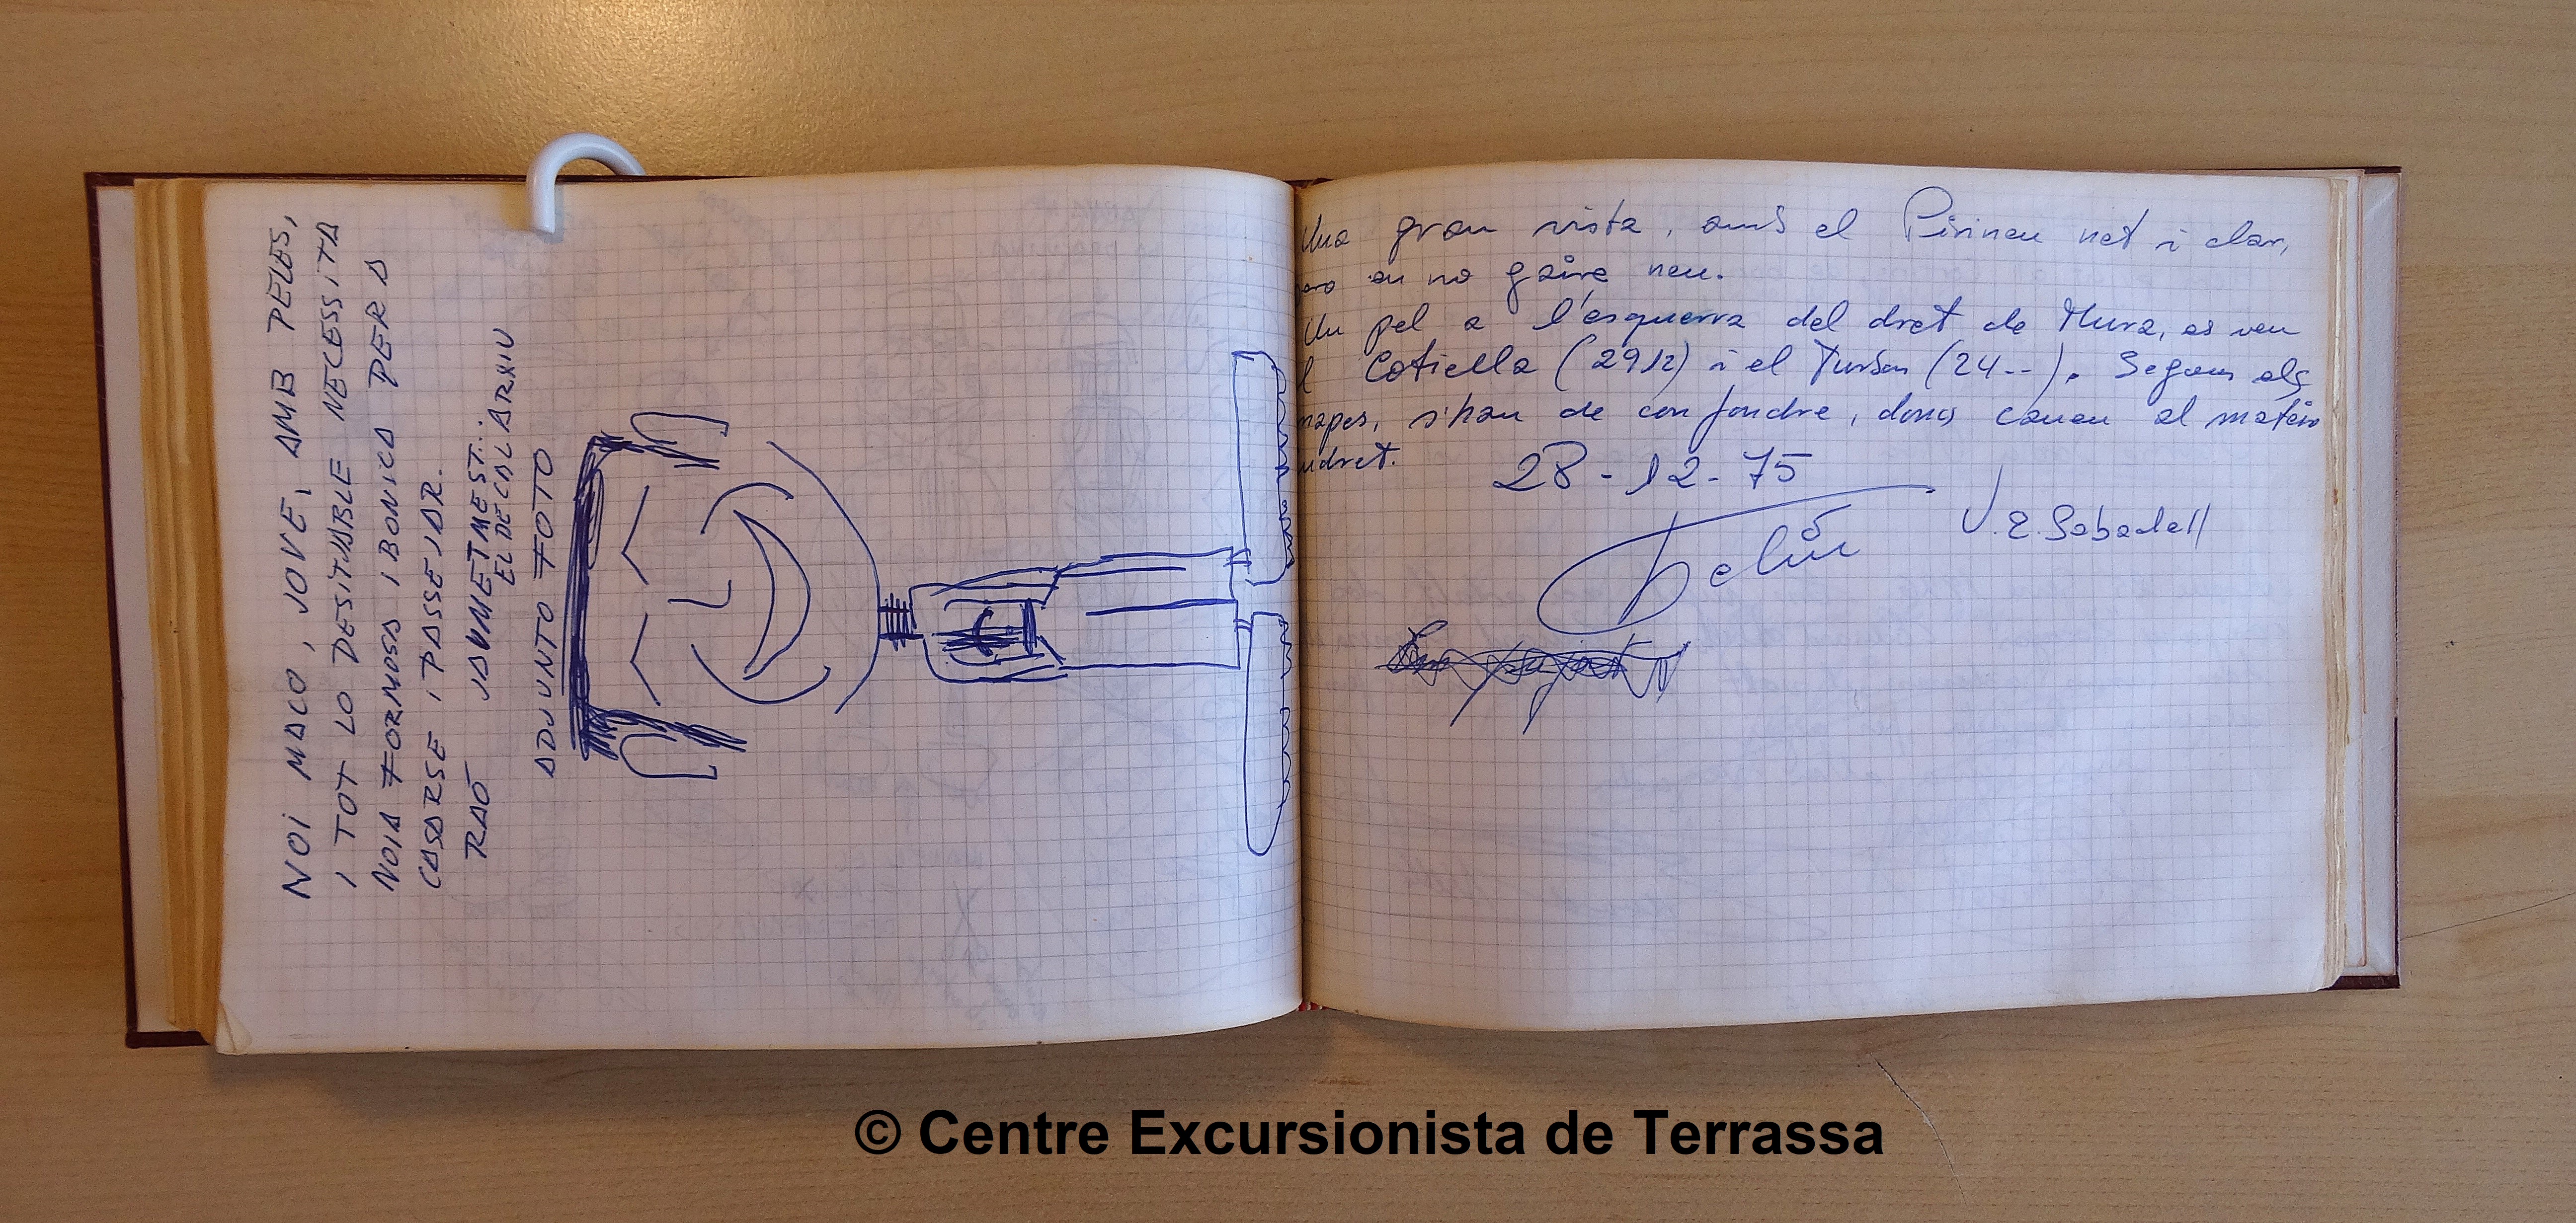 NOI MACO, JOVE, AMB PELES,
I TOT LO DESITJABLE NECESSITA
NOIA FORMOSA I BONICA PER A
CASARSE I PASSEJAR.
RAÓ JAUMETMEST...
EL DE CAL ARXIU
ADJUNTO FOTO
Una gran vista, amb el Pirineu net i clar,
pero en no gaire neu.
Un pel a l'esquerra del dret de Mura, es veu
el Cotiella (2912) i el Turbon (24--). Segons els
mapes, s'han de confondre, doncs cauen al mateix
indret.
28-12-75
U.E. Sabadell
© Centre Excursionista de Terrassa